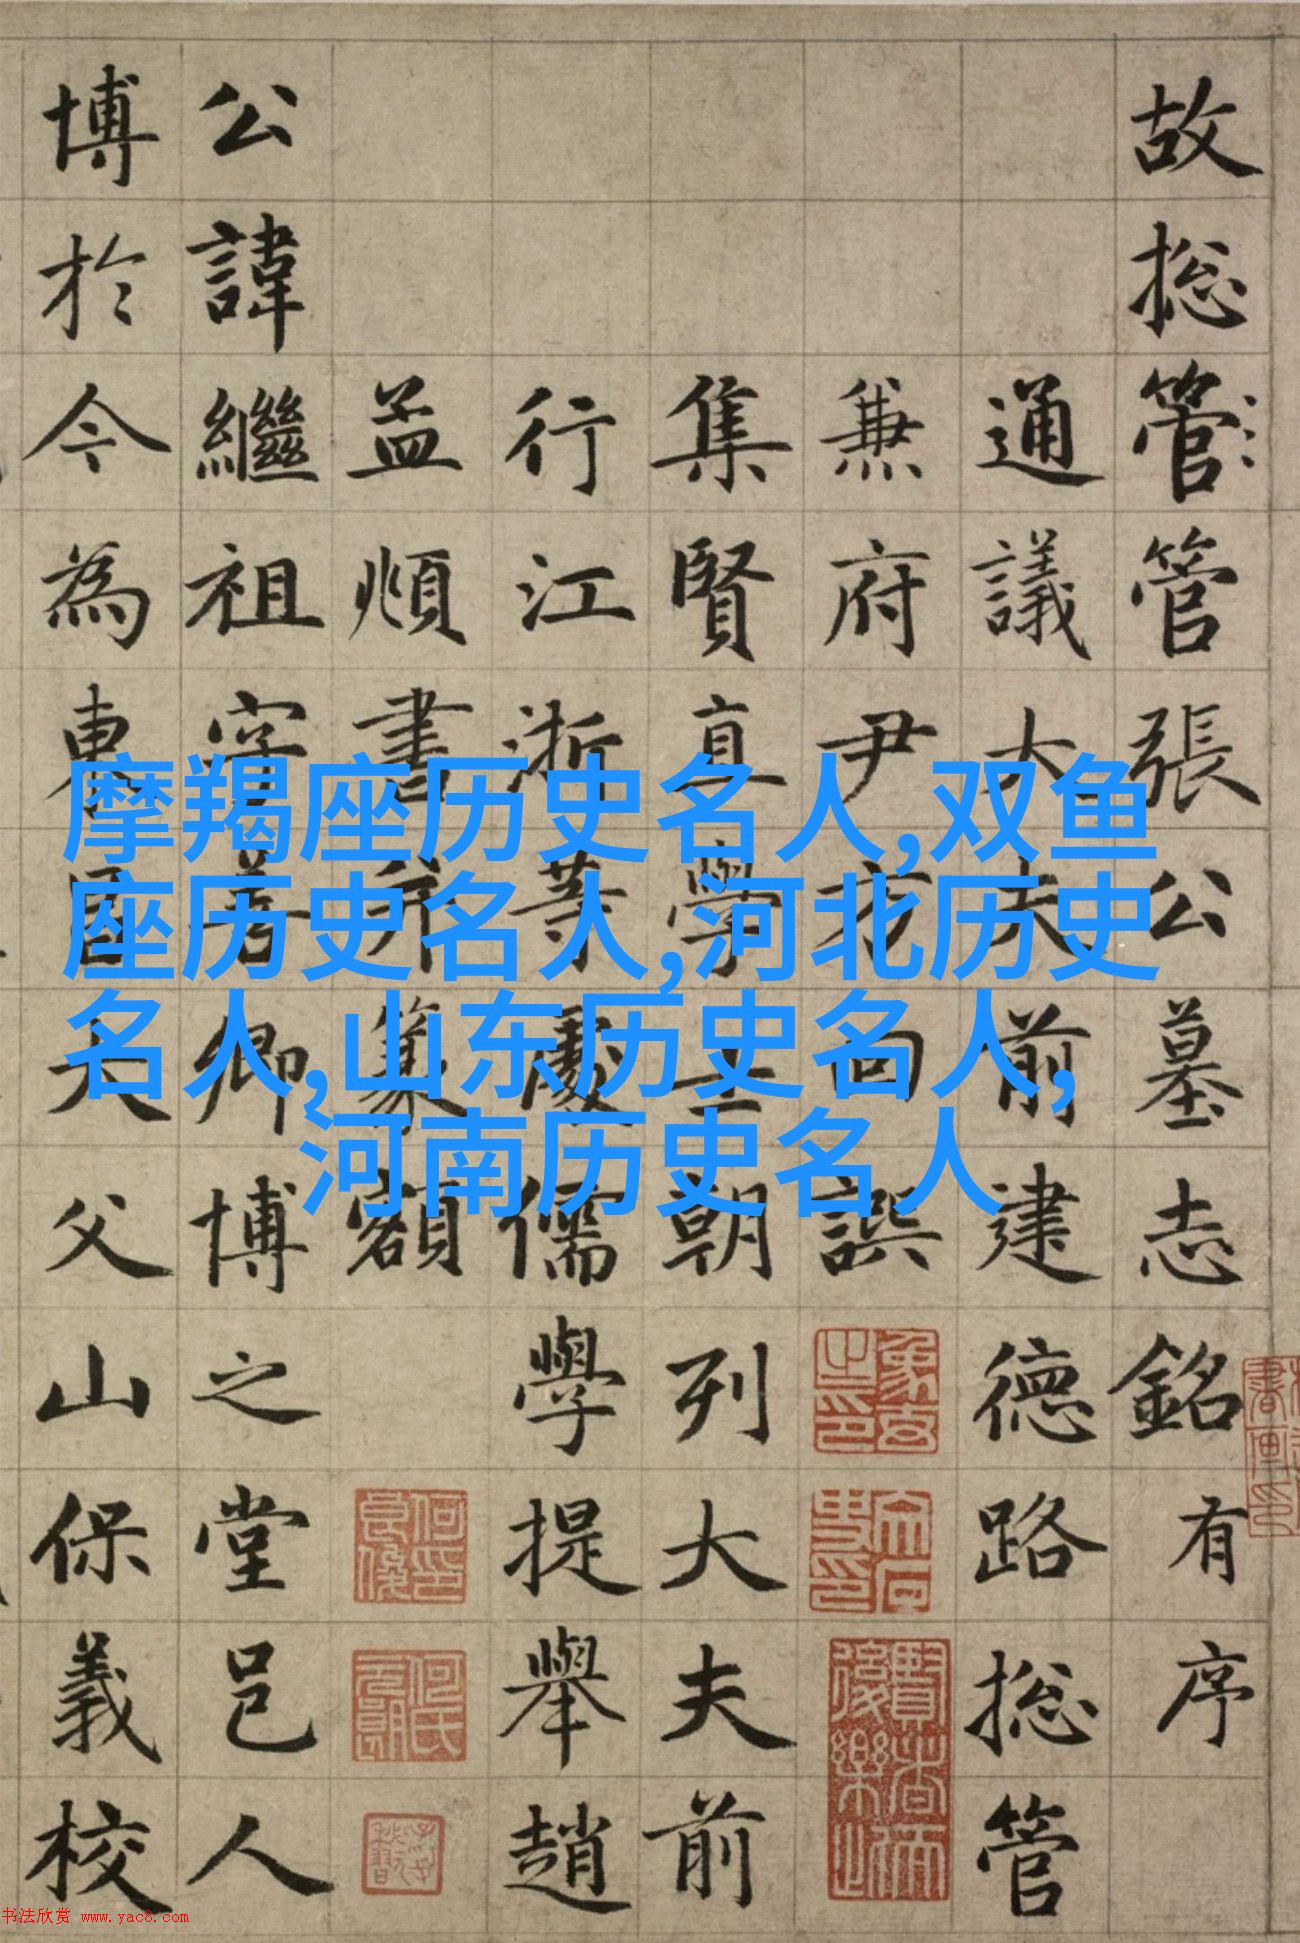 故揔管管張公墓志銘有序
通議大夫前建德路揔管
兼府尹方回譔
集賢直學士朝列大夫前
行江浙等處儒學提舉趙
孟頫書并篆額
公諱繼祖字善卿博之堂邑人
博於今為東昌大父山保義校
摩羯座历史名人,双鱼
座历史名人,河北历史
名人,山东历史名人,
河南历史名人
书法欣赏 www.yac8.com